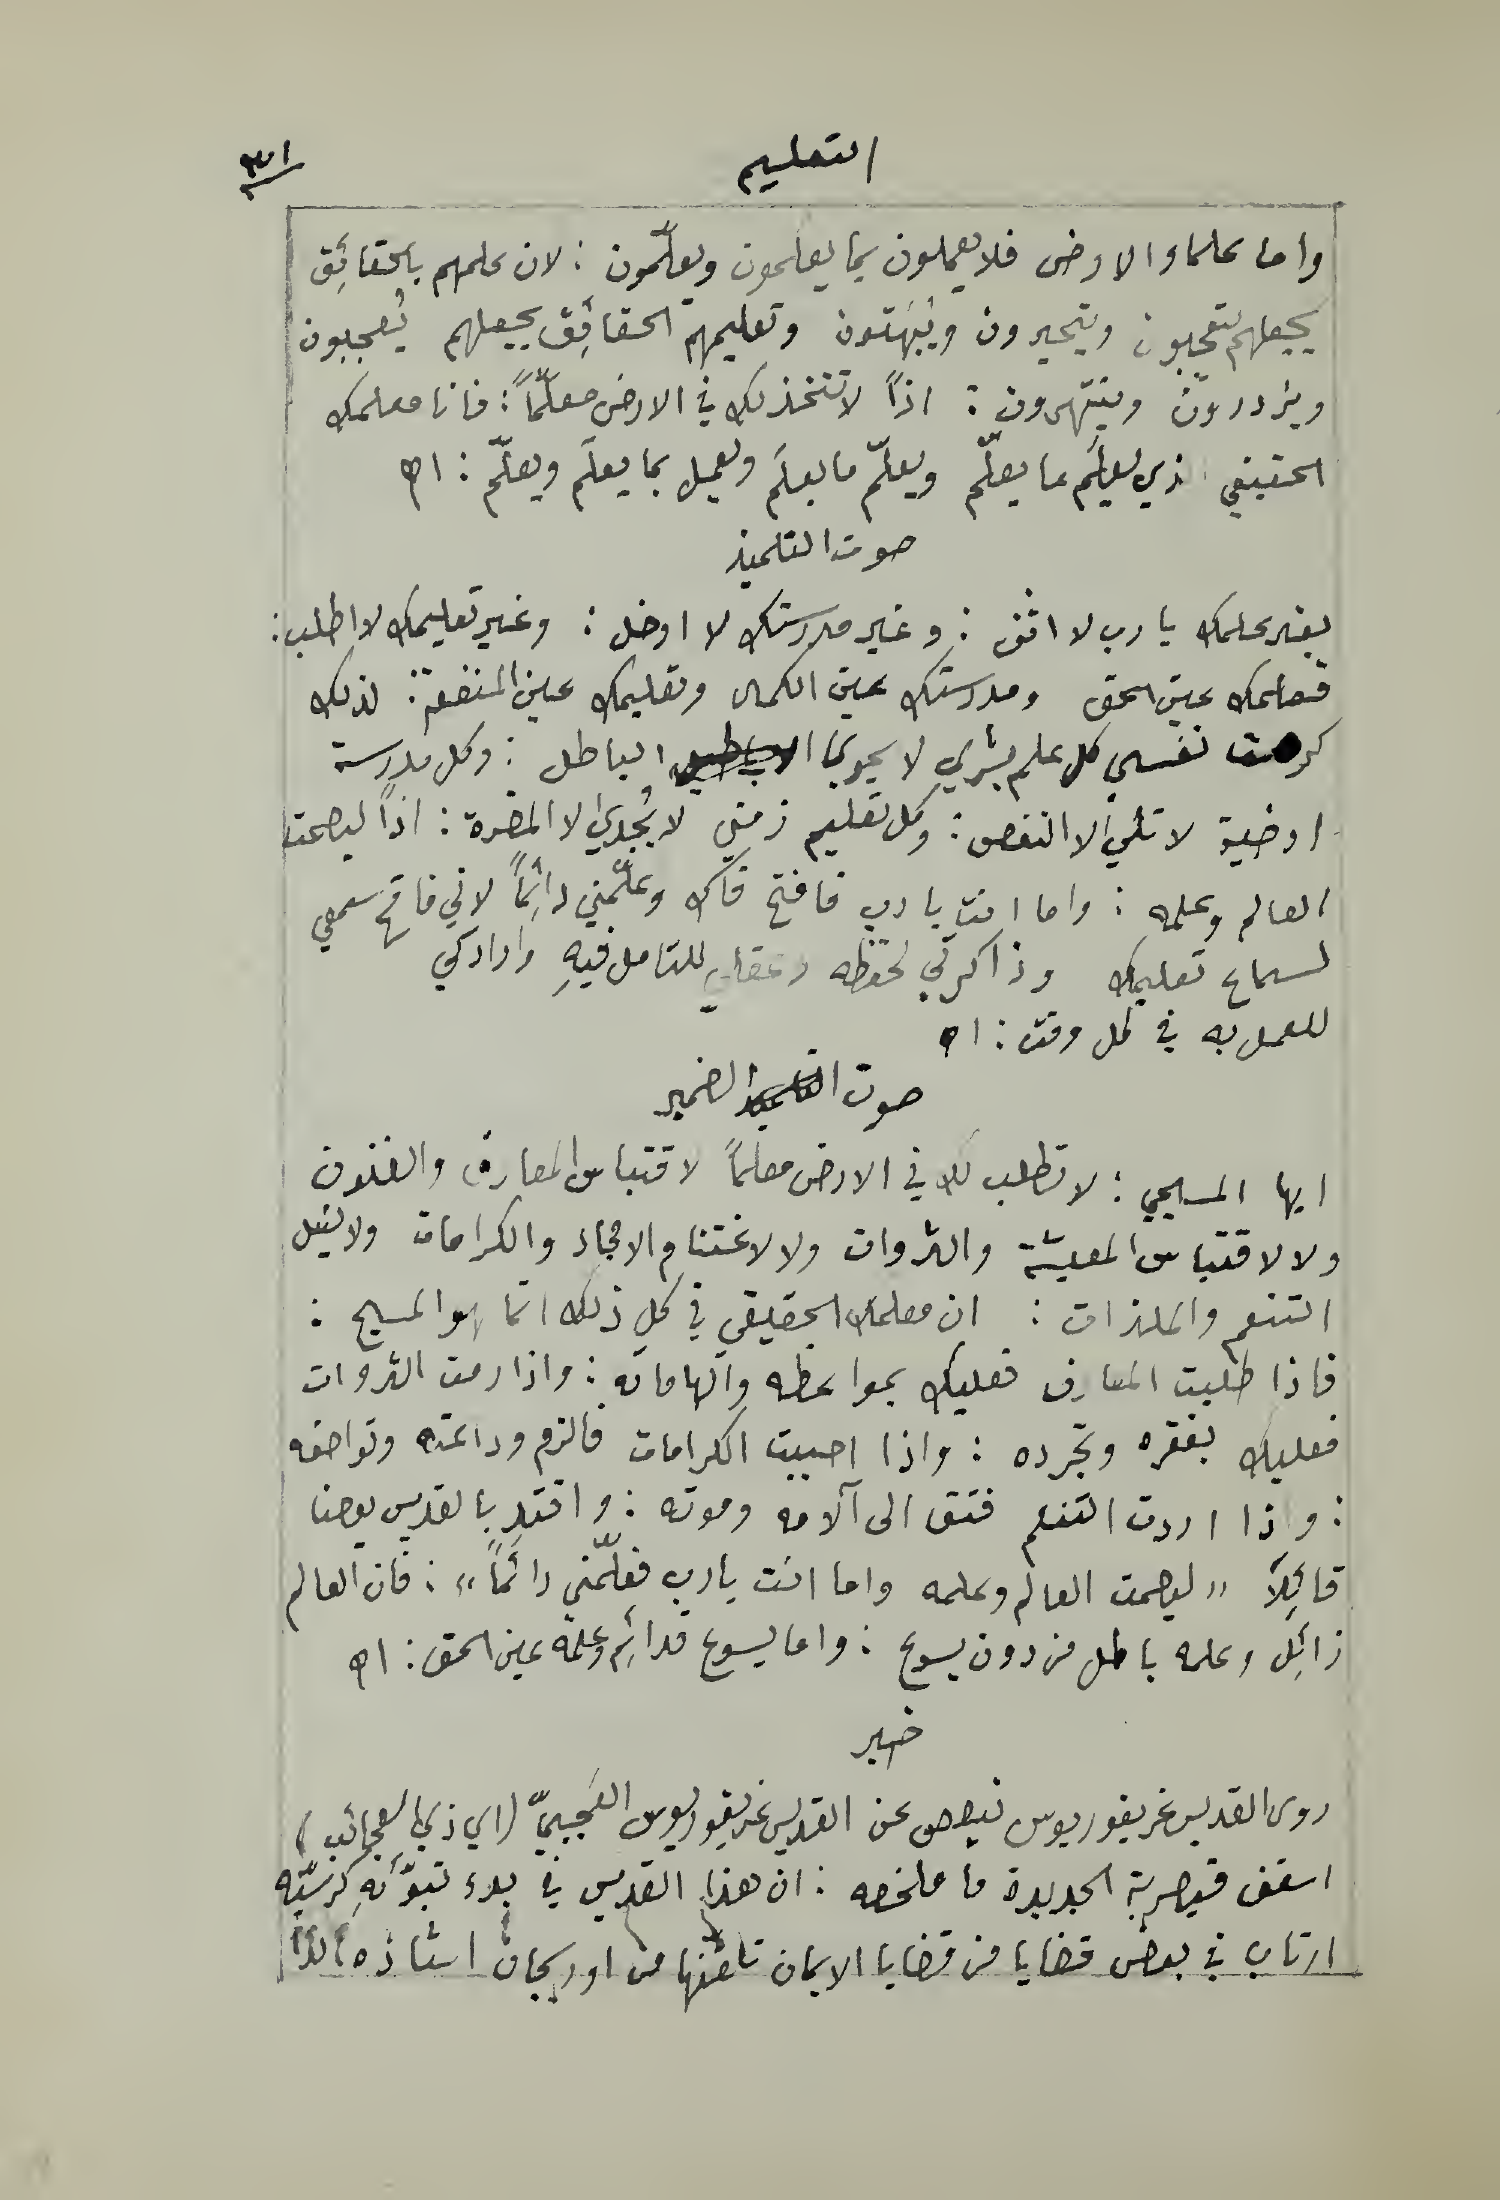 التعليم
واما علماء الارض فلا يعملون بما يعلمون ويعلّمون : لان علمهم بالحقائق
يجعلهم يتعجبون ويتحيرون ويُبهَتون وتعليمهم الحقائق يجعلهم يُعجبون
ويزدرون وينتهرون : اذاً لا تتخذ لك في الارض معلّماً : فانا معلمك
الحقيقي الذي يعلَم ما يعلّم ويعلّم ما يعلَم ويعمل بما يعلَم ويعلّم : اه
صوت التلميذ
بغير علمك يا رب لا اثق : وغير مدرستك لا ادخل : وغير تعليمك لا اطلب :
فعلمك عين الحق ومدرستك عين الكمال وتعليمك عين المنفعة : لذلك
كرهت نفسي كل علم بشري لا يحوي الا الباطل : وكل مدرسة
ارضية لا تلي الا النقص : وكل تعليم زمني لا يُجدي الا المضرة : اذاً ليصمت
العالم وعلمه : واما انت يا رب فافتح فاك وعلّمني دائماً لاني فاتح سمعي
لسماع تعليمك وذاكرتي لحفظه وعقلي للتامل فيهِ وارادتي
للعمل به في كل وقت : اه
صوت الضمير
ايها المسيحي : لا تطلب لك في الارض معلماً لاقتباس المعارف والفنون
ولا لاقتباس المعيشة والثروات ولا لاغتنام الامجاد والكرامات ولا لنيل
التنعم والملذات : ان معلمك الحقيقي في كل ذلك انما هو المسيح :
فاذا طلبت المعارف فعليك بمواعظه والهاماته : واذا رمت الثروات
فعليك بفقره وتجرده : واذا احببت الكرامات فالزم وداعته وتواضعه
: واذا اردت التنعم فتق الى آلامه وموته : واقتدِ بالقديس يوحنا
قائلاً " ليصمت العالم وعلمه واما انت يا رب فعلّمني دائماً " : فان العالم
زائل وعلمه باطل من دون يسوع : واما يسوع فدائم وعلمه عين الحق : اه
خبر
روى القديس غريغوريوس نيصص عن القديس غريغوريوس العجيبيّ (اي ذي العجائب)
اسقف قيصرية الجديدة ما ملخصه : ان هذا القديس في بدء تبوّئهِ كرسيّه
ارتاب في بعض قضايا من قضايا الايمان تلقنها من اوريجان استاذه